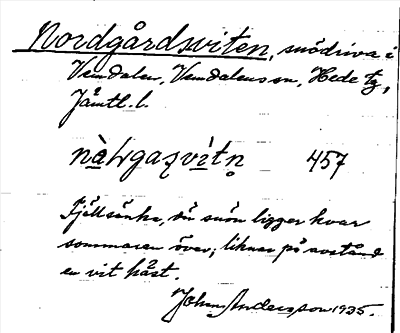 Nordgårdsviten, snödriva i
Vemdalen, Vemdalens sn, Hede tg,
Jämtl. l.
nàɫgaʂvìtn̥ 457
Fjällsänka, där snön ligger kvar
sommaren över; liknar på avstånd
en vit häst.
John Andersson 1935.